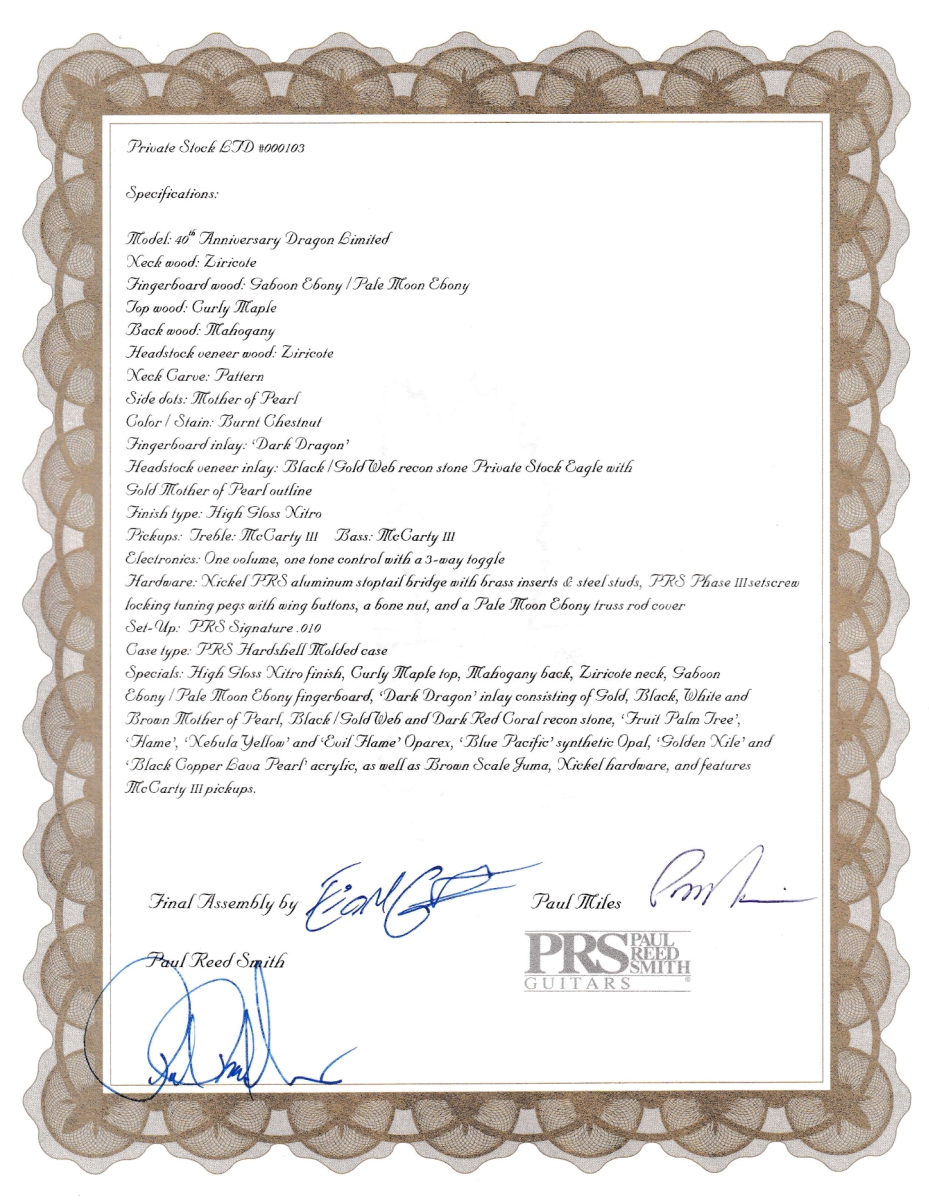 Private Stock LTD #000103
Specifications:
Model: 40th Anniversary Dragon Limited
Neck wood: Ziricote
Fingerboard wood: Gaboon Ebony / Pale Moon Ebony
Top wood: Curly Maple
Back wood: Mahogany
Headstock veneer wood: Ziricote
Neck Carve: Pattern
Side dots: Mother of Pearl
Color / Stain: Burnt Chestnut
Fingerboard inlay: ‘Dark Dragon’
Headstock veneer inlay: Black / Gold Web recon stone Private Stock Eagle with
Gold Mother of Pearl outline
Finish type: High Gloss Nitro
Pickups: Treble: McCarty III Bass: McCarty III
Electronics: One volume, one tone control with a 3-way toggle
Hardware: Nickel PRS aluminum stoptail bridge with brass inserts & steel studs, PRS Phase III setscrew
locking tuning pegs with wing buttons, a bone nut, and a Pale Moon Ebony truss rod cover
Set-Up: PRS Signature .010
Case type: PRS Hardshell Molded case
Specials: High Gloss Nitro finish, Curly Maple top, Mahogany back, Ziricote neck, Gaboon
Ebony / Pale Moon Ebony fingerboard, ‘Dark Dragon’ inlay consisting of Gold, Black, White and
Brown Mother of Pearl, Black / Gold Web and Dark Red Coral recon stone, ‘Fruit Palm Tree’,
‘Flame’, ‘Nebula Yellow’ and ‘Evil Flame’ Oparex, ‘Blue Pacific’ synthetic Opal, ‘Golden Nile’ and
‘Black Copper Lava Pearl’ acrylic, as well as Brown Scale Juma, Nickel hardware, and features
McCarty III pickups.
Final Assembly by
Paul Miles
Paul Reed Smith
PRS PAUL REED SMITH
GUITARS